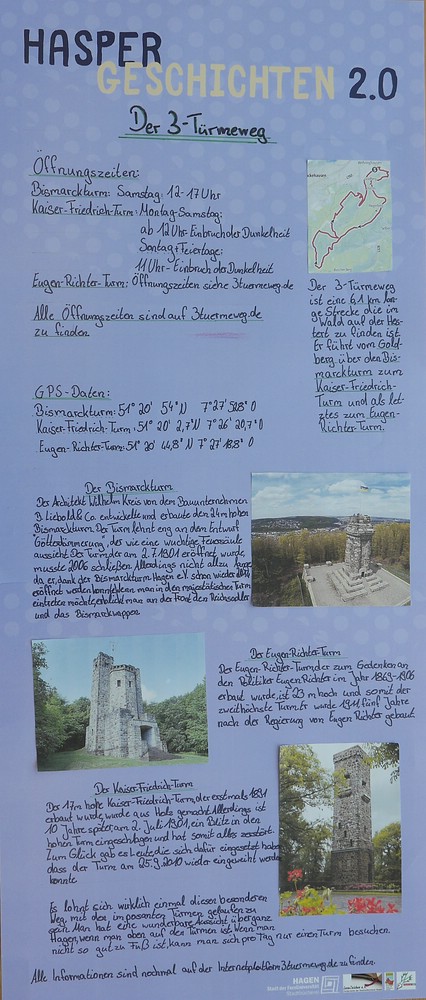 HASPER
GESCHICHTEN 2.0
Der 3-Türmeweg
Öffnungszeiten:
Bismarckturm: Samstag: 12-17 Uhr
Kaiser-Friedrich-Turm: Montag-Samstag:
ab 12 Uhr-Einbruch der Dunkelheit
Sontag+Feiertage:
11 Uhr - Einbruch der Dunkelheit
Eugen-Richter-Turm: Öffnungszeiten siehe 3tuermeweg.de
Alle Öffnungszeiten sind auf 3tuermeweg.de
zu finden
Der 3-Türmeweg
ist eine 6,1 km lan-
ge Strecke die im
Wald auf der Hes-
tert zu finden ist.
Er führt vom Gold-
berg über den Bis-
marckturm zum
Kaiser-Friedrich-
Turm und als let-
ztes zum Eugen-
Richter-Turm.
GPS-Daten:
Bismarckturm: 51° 20' 54" N 7° 27' 52,8" O
Kaiser-Friedrich-Turm: 51° 20' 2,7" N 7° 26' 20,7" O
Eugen-Richter-Turm: 51° 20' 44,8" N 7° 27' 18,8" O
Der Bismarckturm
Der Architekt Wilhelm Kreis von dem Bauunternehmen
D. Liebold & Co. entwickelte und erbaute den 24 m hohen
Bismarckturm. Der Turm lehnt eng an dem Entwurf
"Götterdämmerung", der wie eine wuchtige Feuersäule
aussieht. Der Turm, der am 2.7.1901 eröffnet wurde,
musste 2006 schließen. Allerdings nicht allzu lange
da er, dank der Bismarckturm Hagen e.V. schon wieder
eröffnet werden konnte. Wenn man in den majestätischen Turm
eintreten möchte, erblickt man an der Front den Reichsadler
und das Bismarckwappen.
Der Eugen-Richter-Turm
Der Eugen-Richter-Turm, der zum Gedenken an
den Politiker Eugen Richter im Jahr 1869-1906
erbaut wurde, ist 23 m hoch und somit der
zweithöchste Turm. Er wurde 1911 fünf Jahre
nach der Regierung von Eugen Richter gebaut.
Der Kaiser-Friedrich-Turm
Der 17 m hohe Kaiser-Friedrich-Turm, der erstmals 1891
erbaut wurde, wurde aus Holz gemacht. Allerdings ist
10 Jahre später, am 2. Juli 1901, ein Blitz in den
hohen Turm eingeschlagen und hat somit alles zerstört.
Zum Glück gab es Leute die sich dafür eingesetzt haben
dass der Turm am 25.9.2010 wieder eingeweiht werden
konnte.
Es lohnt sich wirklich einmal diesen besonderen
Weg, mit den imposanten Türmen gelaufen zu
sein. Man hat eine wunderbare Aussicht über ganz
Hagen, wenn man oben auf den Türmen ist. Wenn man
nicht so gut zu Fuß ist, kann man sich pro Tag nur einen Turm besuchen.
Alle Informationen sind nochmal auf der Internetplatform 3tuermeweg.de zu finden.
HAGEN